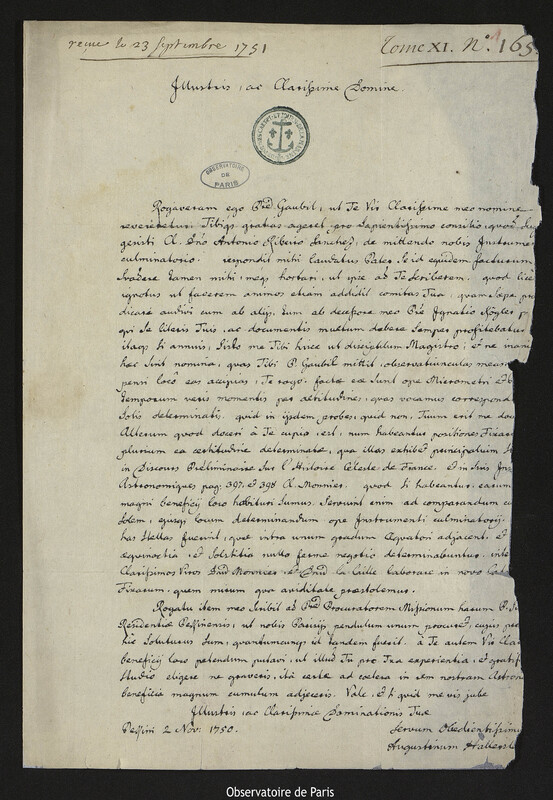 reçue le 23 Septembre 1751
Tome XI. N°. 165
Illustris, ac Clarissime Domine.
OBSERVATOIRE
DE
PARIS
Rogaveram ego P. Gaubil, ut Te Vir Clarissime meo nomine
gratias ageret pro Sapientissimo consilio, quod
gesisti Cl. Dño Antonio Ribeiro Sanchez, de mittendo nobis
culminatorio. respondit mihi laudatus Pater se id equidem facturum
tamen mihi, meq; hortari, ut ipse ad Te scriberem. quod licet
ignotus ut facerem animos etiam addidit comitas Tua, quam saepe
audivi cum ab alijs, tum ab decessore meo P. Ignatio Kögler
qui se literis Tuis, ac documentis multum debere semper profitebatur
itaq; si annuis, sisto me Tibi hisce ut discipulum Magistro; et ne
haec sint nomina, quas Tibi P. Gaubil mittit, observatiunculas meas
pensi loco eas acquas, Te rogo. factae eae sunt ope Micrometri et
temporum veris momentis per altitudines, quas vocamus correspond
Solis determinatis. quid in ijsdem probes, quid non, Tuum erit me
Alterum quod doceri à Te cupio, est, num habeantur positiones Fixarum
plurium ea certitudine determinatae, qua illas exhibet principalium
in Discours Preliminaire sur l'Histoire Celeste de France. et in suis
Astronomiques pag: 397. et 398 Cl. Monnier. quod si habeantur. earum
magni beneficij loco habituri sumus. Servient enim ad comparandum
idem, ejusq; locum determinandum ope Instrumenti culminatorij
has stellas fuerit, quae intra unum gradum Æquatori adjacent. et
æquinoctia, et solstitia nullo ferme negotio determinabuntur.
Clarissimos Viros Dnũ Monnier, et Dnũ la Caille laborare in novo
Fixarum, quem mirum qua aviditate praestolemur.
Rogatu item meo scribit ad Procuratorem Missionum harum P.
Residentiae Pekinensis, ut nobis Parisijs pendulum unum procuret, cujus
hic soluturus sum, quantumcunq; id tandem fuerit. à Te autem Vir
beneficij loco petendum putavi, ut illud Tu pro Tua experientia, et
studio eligere ne graveris, ita certe ad caetera in rem nostram
beneficia magnum cumulum adjeceris. Vale, et quid me vis jube
Illustris, ac Clarissimae Dominationis Tuae
Pekini 2 Nov. 1750.
Servum Obedientissimum
Augustinum
Observatoire de Paris